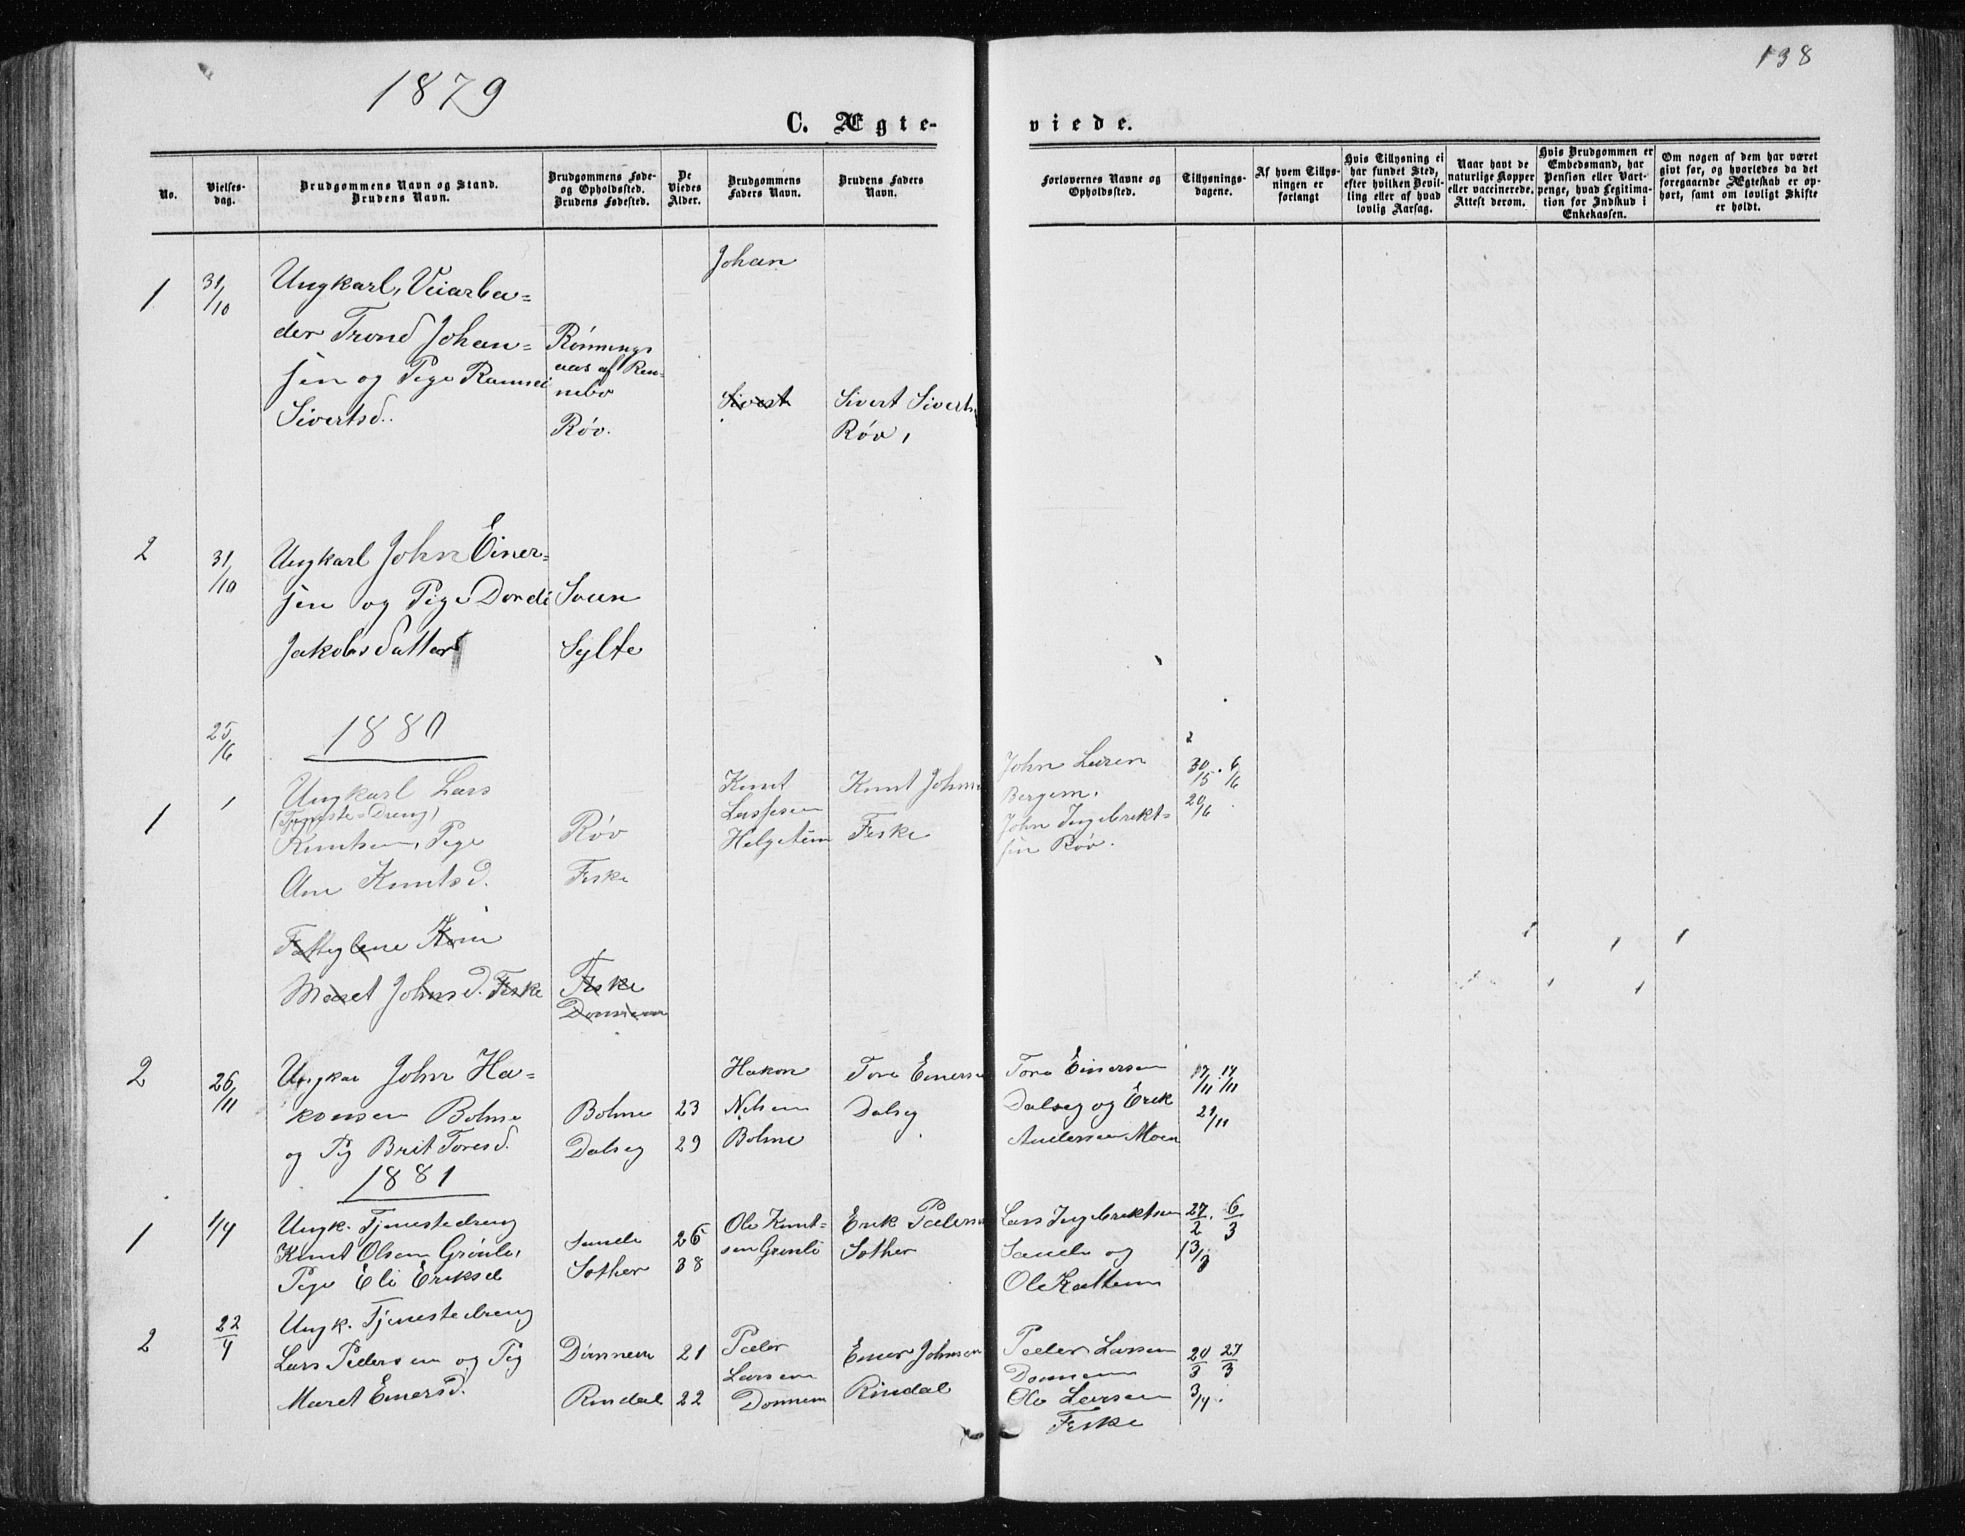 138
1879
C. Ægte-
viede.
No.
Vielses-
dag.
Brudgommens Navn og Stand.
Brudens Navn.
Brudgommens Føde-
og Opholdssted.
Brudens Fødested.
De
Viedes
Alder.
Brudgommens
Faders Navn.
Brudens Faders
Navn.
Forlovernes Navne og
Opholdssted.
Tillysnings-
dagene.
Af hvem Tillys-
ningen er
forlangt
Hvis Tillysning ei
har fundet Sted,
efter hvilken Bevil-
ling eller af hvad
lovlig Aarsag.
Naar havt de
naturlige Kopper
eller vaccinerede.
Attest derom.
Hvis Brudgommen er
Embedsmand, har
Pension eller Vart-
penge, hvad Legitima-
tion for Indskud i
Enkekassen.
Om nogen af dem har været
givt før, og hvorledes da det
foregaaende Ægteskab er op-
hørt, samt om lovligt Skifte
er holdt.
1
31/10
Ungkarl, Veiarbei=
der Trond Johan=
sen og Pige Rannei
Sivertsd.
Rønnings
aas af Ren-
nebo
Røv.
Johan
Sivert
Sivert Siverts
Røv,
2
31/10
Ungkarl John Einer=
sen og Pige Dordi
Jakobsdatter
Saen
Sylte
1880
1
25/6
Ungkarl Lars
(Tjeneste=Dreng)
Knutsen, Pige
Ane Knutsd.
Røv
Feske
Knut
Larssen
Helgetun
Knut Johns
Feske
John Larsen
Bergem.
John Ingebrikt=
sen Røv.
30/5 . 6/6
20/6
Maret Johnsd. Feske
Feske
Donnem
2
26/11
Ungkar John Ha=
konsen Bolme
og Pig Brit Toresd.
Bolme
Dalseg
23
29
Hakon
Nilsen
Bolme
Tore Einersen
Dalseg
Tore Einersen
Dalseg og Erik
Andersen Moen
17/11 14/11
21/11
1881
1
1/4
Ungk. Tjenestedreng
Knut Olsen Grønli,
Pige Eli Eriksd
Sande
Sæther
26
38
Ole Knut-
sen Grønli
Erik Pedersen
Sæther
Lars Ingebriktsen
Sande og
Ole Kattem
27/2 . 6/3
13/3
2
22/4
Ungk. Tjenestedreng
Lars Pedersen og Pig
Maret Einersd.
Dønnem
Rindal
21
22
Peder
Larsen
Donnem
Einer Johnsen
Rindal
Peder Larsen
Donnem
Ole Larsen
Feske
20/3 27/3
3/4